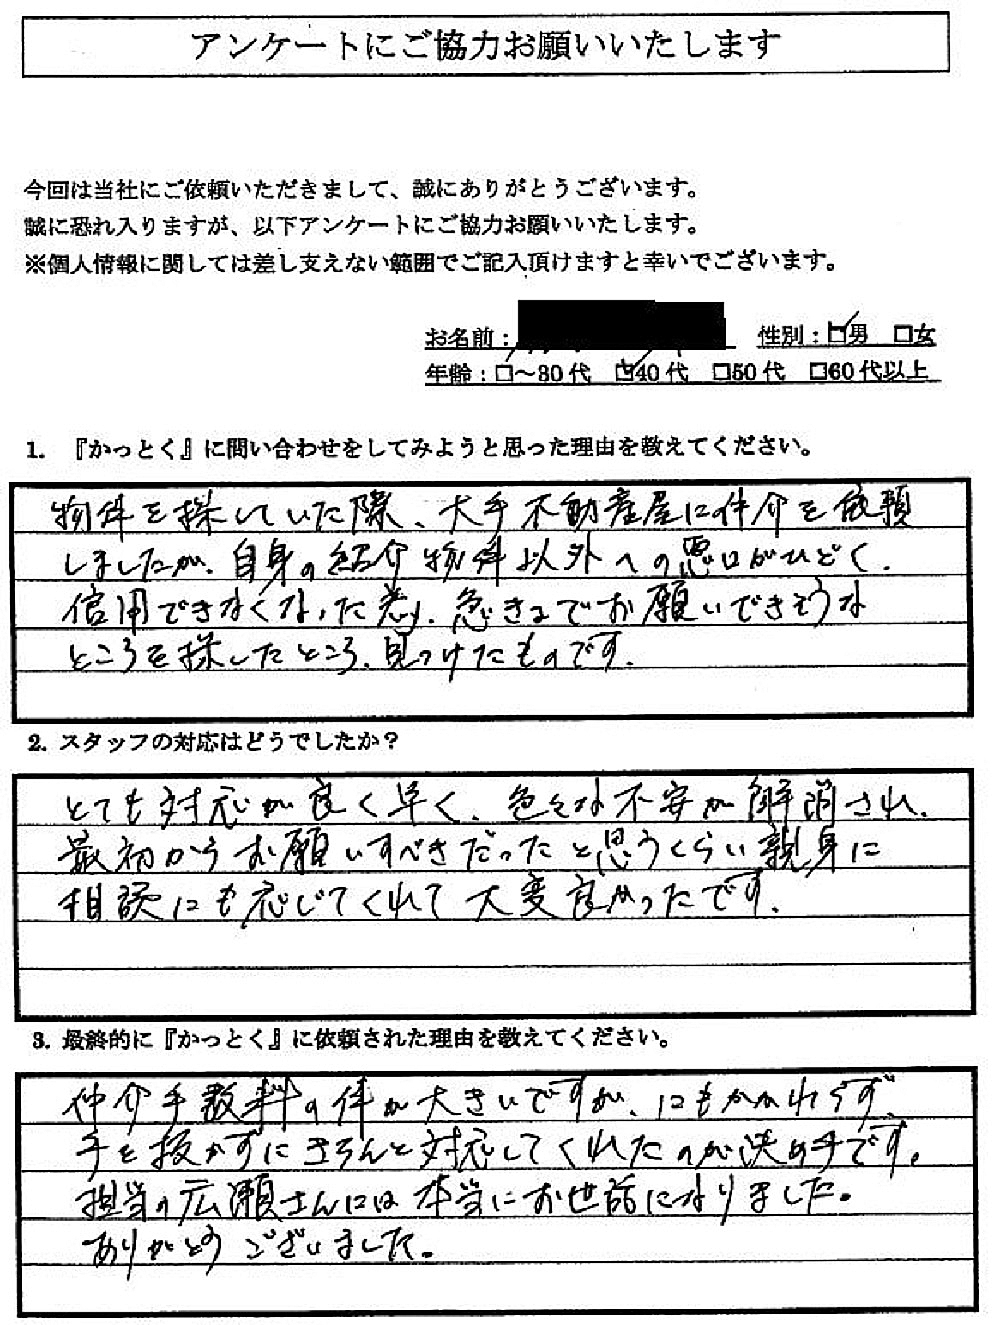 アンケートにご協力お願いいたします
今回は当社にご依頼いただきまして、誠にありがとうございます。
誠に恐れ入りますが、以下アンケートにご協力お願いいたします。
※個人情報に関しては差し支えない範囲でご記入頂けますと幸いでございます。
お名前： 性別：☑男 □女
年齢：□～30代 ☑40代 □50代 □60代以上
1. 『かっとく』に問い合わせをしてみようと思った理由を教えてください。
物件を探していた際、大手不動産屋に仲介を依頼
しましたが、自身の紹介物件以外への悪口がひどく、
信用できなくなった為、急きょでお願いできそうな
ところを探したところ、見つけたものです。
2. スタッフの対応はどうでしたか？
とても対応が良く早く、色々な不安が解消され、
最初からお願いすべきだったと思うくらい親身に
相談にも応じてくれて大変良かったです。
3. 最終的に『かっとく』に依頼された理由を教えてください。
仲介手数料の件が大きいですが、にもかかわらず、
手を抜かずにきちんと対応してくれたのが決め手です。
担当の広瀬さんには本当にお世話になりました。
ありがとうございました。